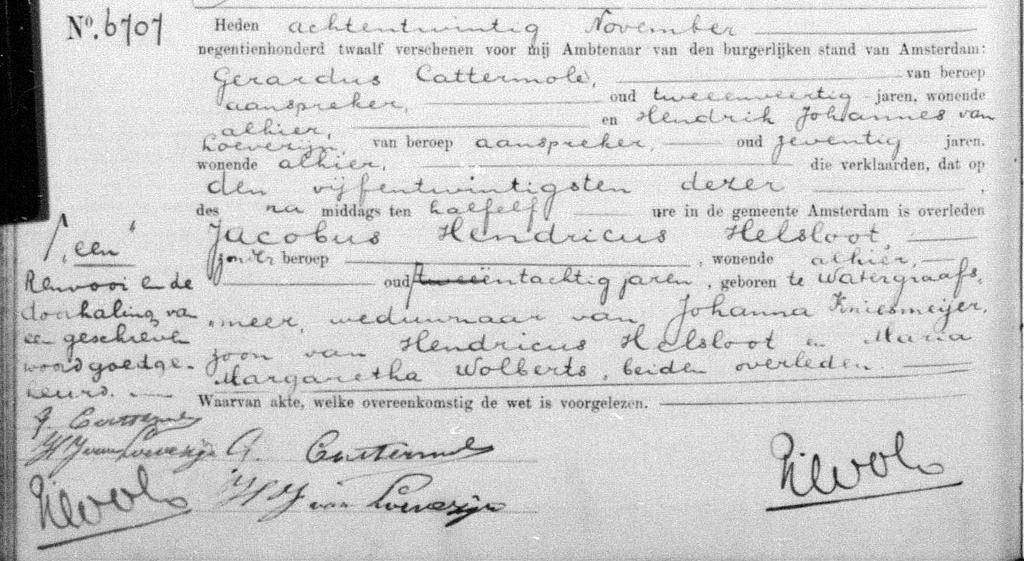 No. 6707
Heden achtentwintig November
negentienhonderd twaalf verschenen voor mij Ambtenaar van den burgerlijken stand van Amsterdam:
Gerardus Cattermole, van beroep
aanspreker, oud tweeenveertig jaren, wonende
alhier, en Hendrik Johannes van
Loeverijn, van beroep aanspreker, oud zeventig jaren,
wonende alhier, die verklaarden, dat op
den vijfentwintigsten dezer,
des na middags ten halfelf ure in de gemeente Amsterdam is overleden
Jacobus Hendricus Helsloot,
zonder beroep, wonende alhier,
oud tweeëntachtig jaren, geboren te Watergraafs-
meer, weduwnaar van Johanna Kniesmeijer,
zoon van Hendricus Helsloot en Maria
Margaretha Wolberts, beiden overleden.
Waarvan akte, welke overeenkomstig de wet is voorgelezen.
„een"
Renvooi en de
doorhaling van
een geschreven
woord goedge-
keurd.
G. Cattermole
HJ van Loeverijn G. Cattermole
HJ van Loeverijn